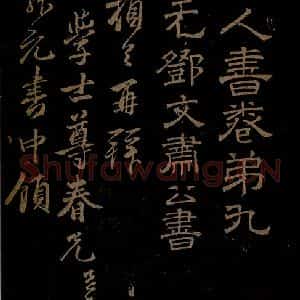 人書卷第九
元鄧文肅公書
頓首再拜
學士尊春兄
元書中領
Shufawang.CN